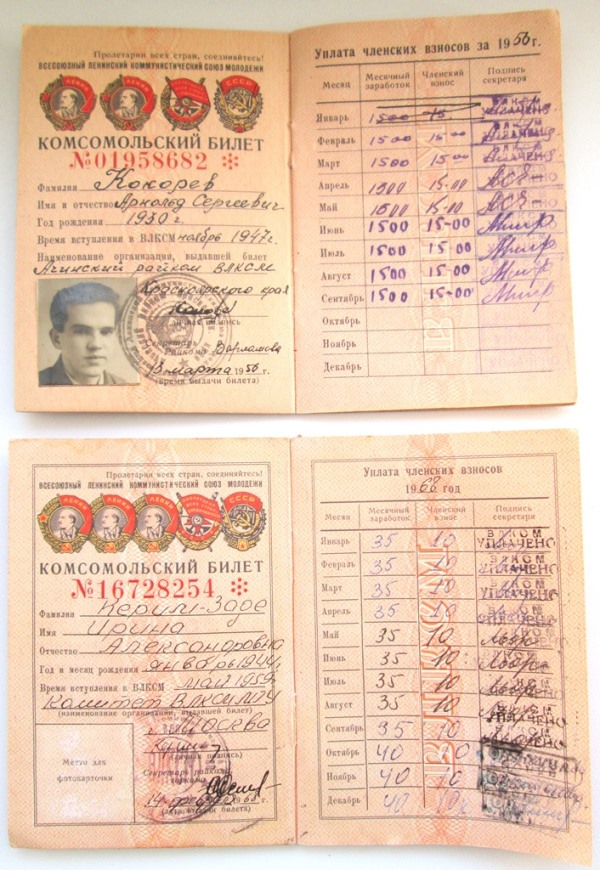 Пролетарии всех стран, соединяйтесь!
ВСЕСОЮЗНЫЙ ЛЕНИНСКИЙ КОММУНИСТИЧЕСКИЙ СОЮЗ МОЛОДЕЖИ
КОМСОМОЛЬСКИЙ БИЛЕТ
№01958682
Фамилия Кокорев
Имя и отчество Арнольд Сергеевич
Год рождения 1930 г.
Время вступления в ВЛКСМ ноябрь 1947 г.
Наименование организации, выдавшей билет
Ачинский райком ВЛКСМ
Красноярского края
Личная подпись
Секретарь
Райкома
марта 1956 г.
(время выдачи билета)
Уплата членских взносов за 1956 г.
Месяц Месячный заработок Членский взнос Подпись секретаря
Январь 1500 15. ВЛКСМ УПЛАЧЕНО
Февраль 1500 15-00 УПЛАЧЕНО
Март 1500 15-00 УПЛАЧЕНО
Апрель 1500 15-00
Май 1500 15-00
Июнь 1500 15-00
Июль 1500 15-00
Август 1500 15-00
Сентябрь 1500 15-00
Октябрь
Ноябрь
Декабрь
Пролетарии всех стран, соединяйтесь!
ВСЕСОЮЗНЫЙ ЛЕНИНСКИЙ КОММУНИСТИЧЕСКИЙ СОЮЗ МОЛОДЕЖИ
КОМСОМОЛЬСКИЙ БИЛЕТ
№16728254
Фамилия Керим-Заде
Имя Ирина
Отчество Александровна
Год и месяц рождения январь 1944
Время вступления в ВЛКСМ май 1959
Комитет ВЛКСМ МГУ
(наименование организации, выдавшей билет)
г. Москва
(личная подпись)
Место для фотокарточки
Секретарь райкома
(время выдачи билета)
Уплата членских взносов
1968 год
Месяц Месячный заработок Членский взнос Подпись секретаря
Январь 35 10 ВЛКСМ УПЛАЧЕНО
Февраль 35 10 ВЛКСМ УПЛАЧЕНО
Март 35 10 ВЛКСМ УПЛАЧЕНО
Апрель 35 10 ВЛКСМ УПЛАЧЕНО
Май 35 10
Июнь 35 10
Июль 35 10
Август 35 10 УПЛАЧЕНО
Сентябрь 35 10 ВЛКСМ УПЛАЧЕНО
Октябрь 40 10
Ноябрь 40 10
Декабрь 40 10